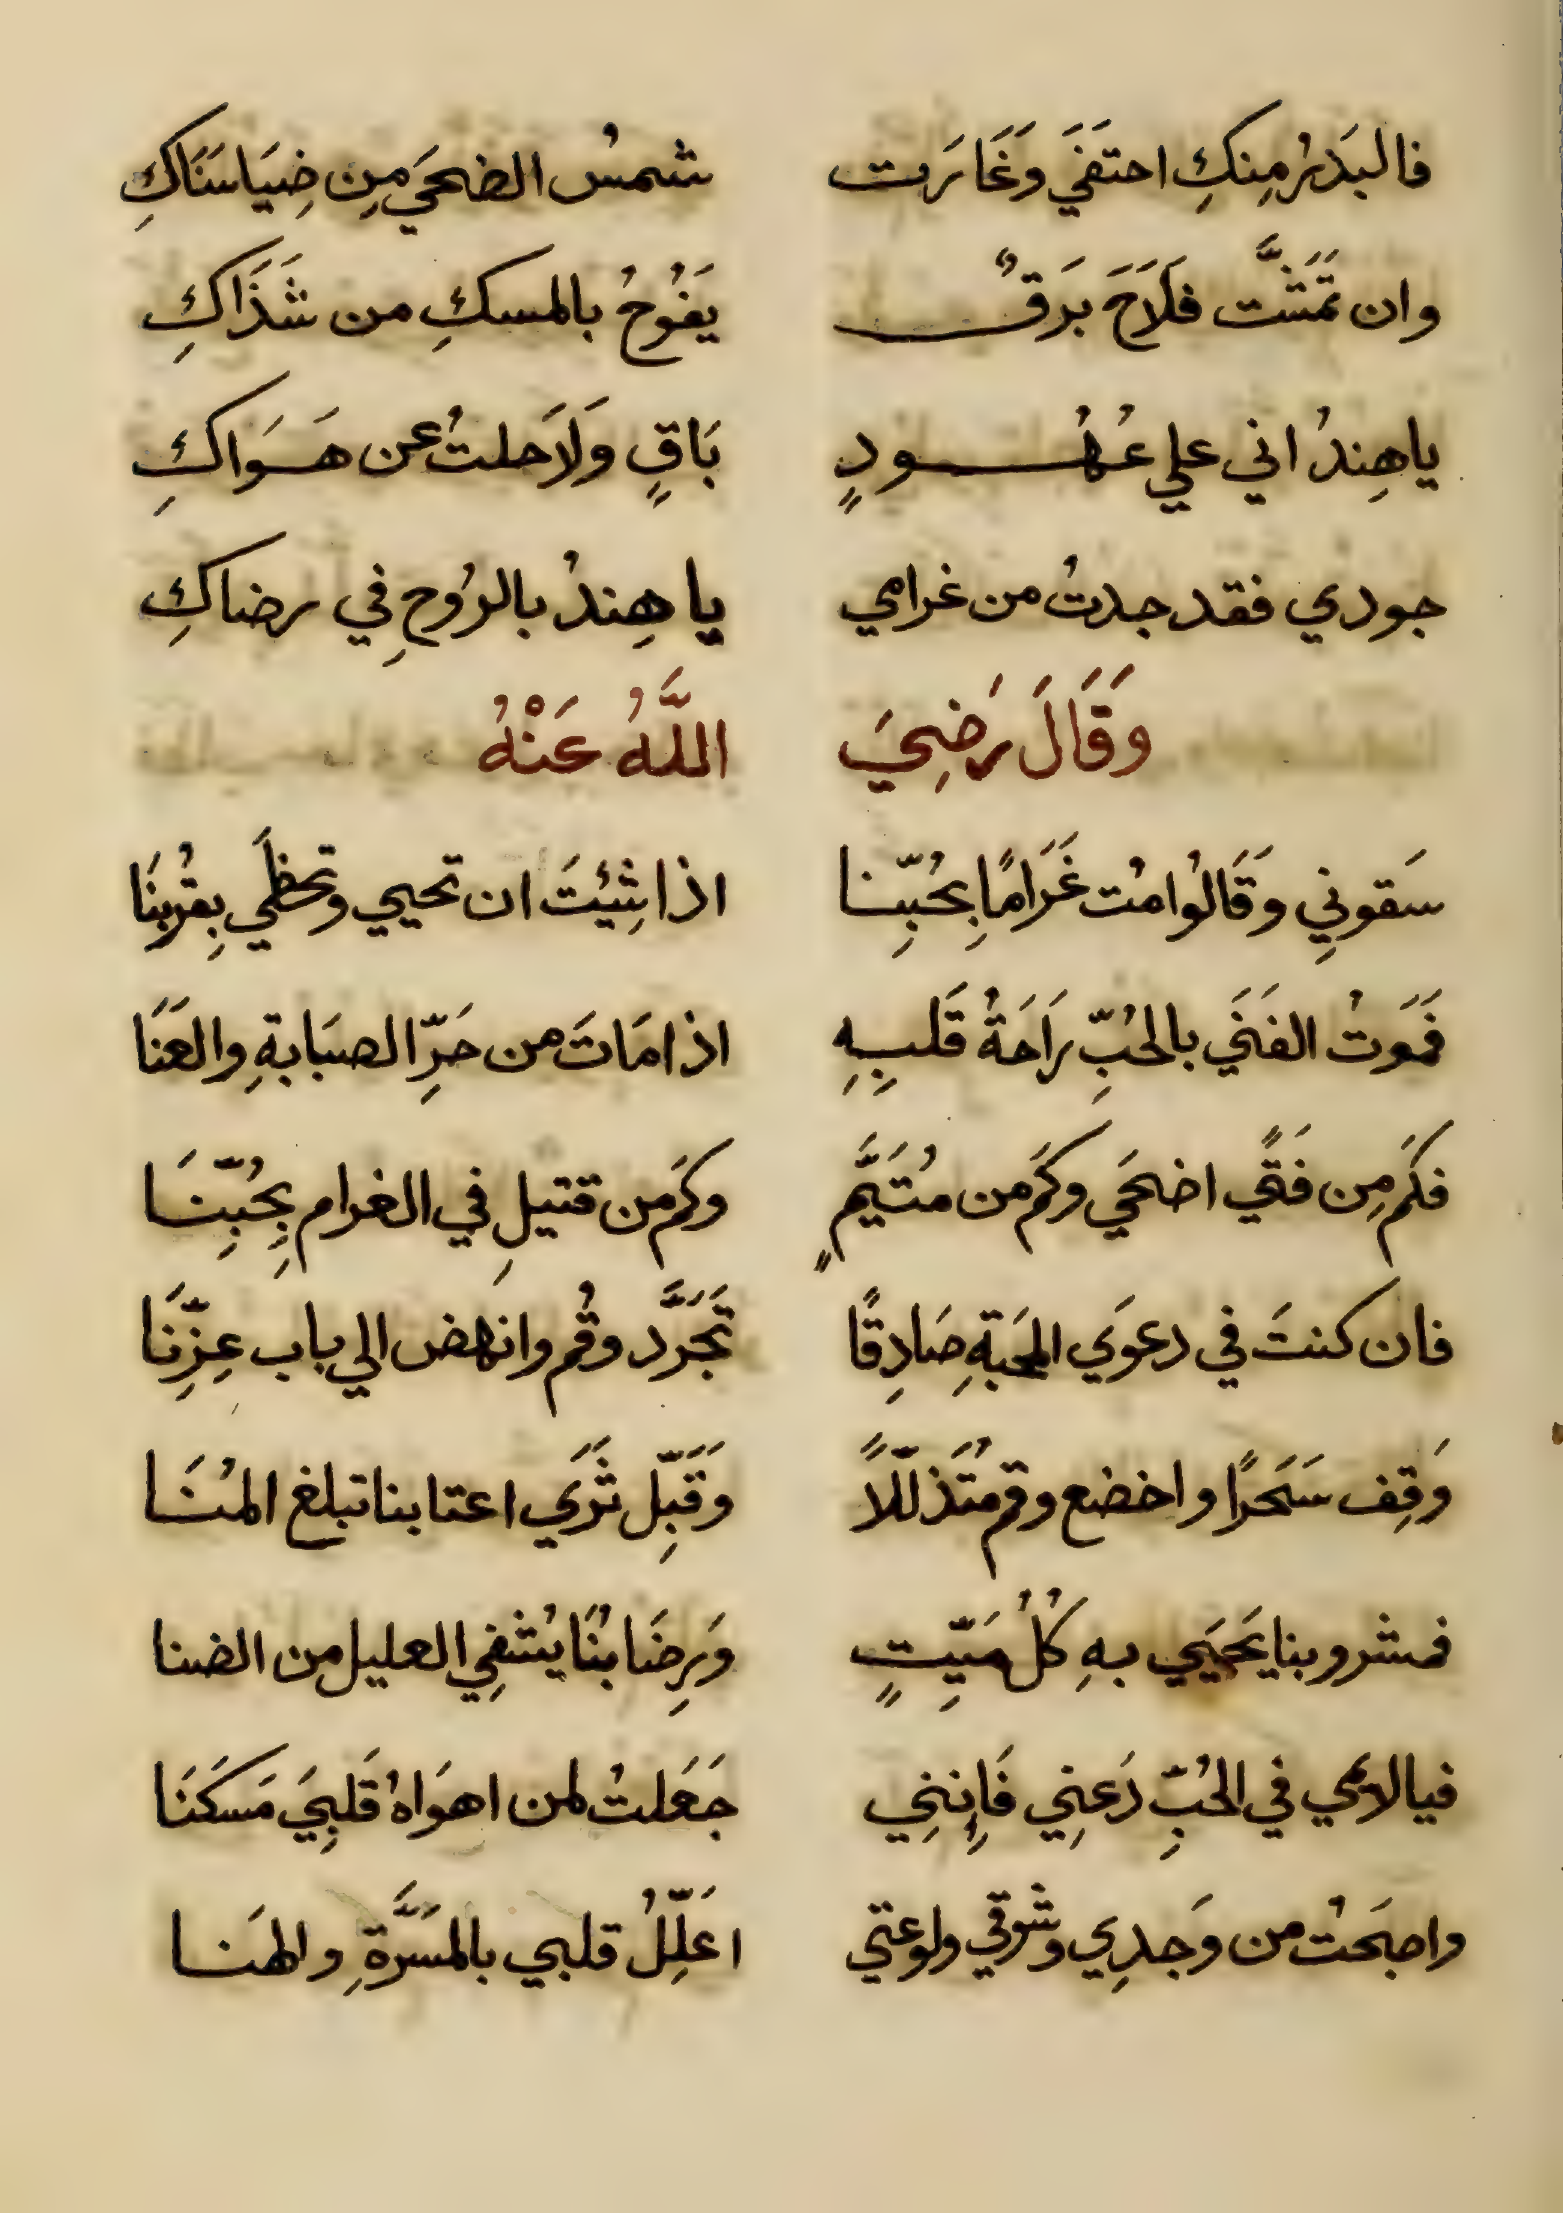 فالبَدرُ مِنكِ احتفَي وَغَارت شمسُ الضحَي مِن ضِيَا سَنَاكِ
وان تَمَشَّت فلَاحَ بَرَقٌ يَفُوحُ بالمسكِ من شَذَاكِ
يا هِندُ اني علي عُهُودٍ بَاقٍ وَلَا حلتُ عن هَوَاكِ
جودي فقد جدتُ من غرامي يا هِندُ بالرُوحِ في رضاكِ
وَقَالَ رَضِيَ اللَّهُ عَنْهُ
سَقوني وَقَالُوا مُت غَرَامًا بِحُبِّنا اذا شِئتَ ان تحيي وتحظَي بِقُربِنَا
فَمَوتُ الفَتَي بالحُبِّ رَاحَةُ قَلبِهِ اذا مَاتَ من حَرِّ الصبَابةِ والعَنَا
فكَم مِن فَتًي اضحَي وكَم من مُتَيَّمٍ وكَم من قتيلِ في الغرام بِحُبِّنَا
فان كنتَ في دعوَي المحَبةِ صَادِقًا تَجَرَّد وقُم وانهض الي باب عِزِّنَا
وَقِف سَحَرًا واخضع وقم مُتَذللًا وَقَبِّل ثَرَي اعتابنا تبلغ المُنَا
فمشروبنا يَحيَي بهِ كُلُ مَيِّتٍ وَرِضَابُنَا يُشفِي العليل مِن الضنا
فيا لائمي في الحُبِّ دَعنِي فَإِنِني جَعَلتُ لمن اهوَاهُ قَلبِيَ مَسكَنَا
واصبَحتُ من وَجدِي وشَوقي ولوعتي اعَلِّلُ قلبي بالمَسَرَّةِ والهَنا